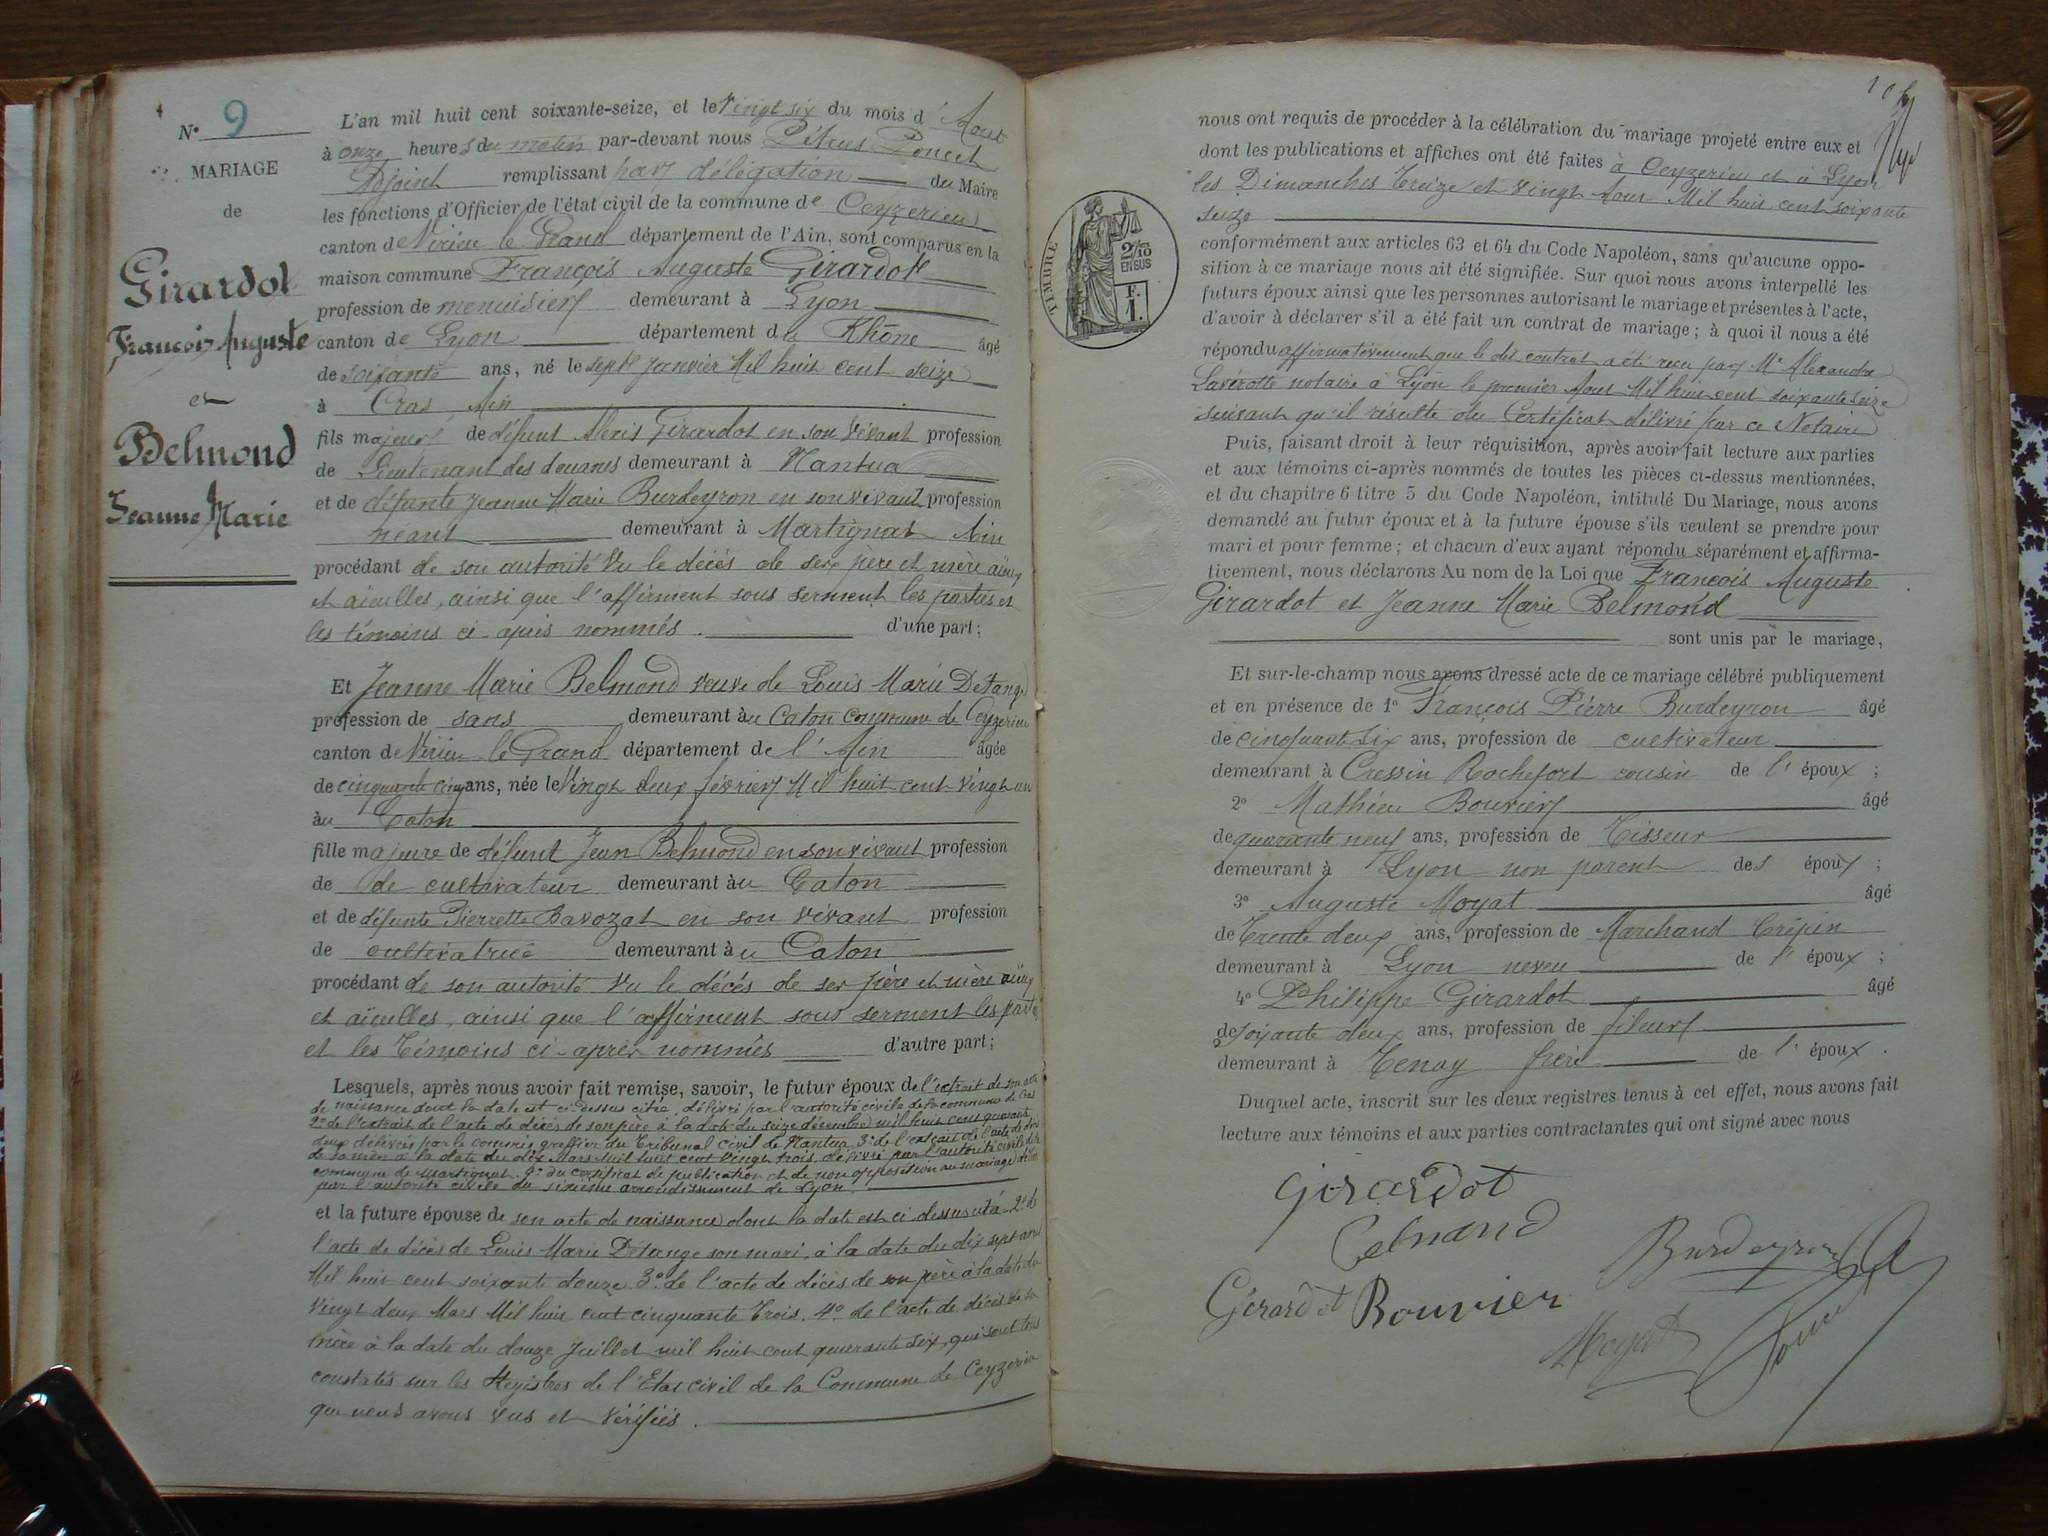 N° 9
MARIAGE
de
Girardot
François Auguste
et
Belmond
Jeanne Marie
L'an mil huit cent soixante-seize, et le vingt six du mois d'Aout
à onze heures du matin par-devant nous Pétrus Poncet
Adjoint remplissant par délégation du Maire
les fonctions d'Officier de l'état civil de la commune de Ceyzerieu
canton de Virieu le Grand département de l'Ain, sont comparus en la
maison commune François Auguste Girardot
profession de menuisier demeurant à Lyon
canton de Lyon département du Rhône âgé
de soixante ans, né le sept janvier Mil huit cent seize
à Cras Ain
fils majeur de défunt Alexis Girardot en son vivant profession
de Lieutenant des douanes demeurant à Nantua
et de défunte Jeanne Marie Burdeyron en son vivant profession
néant demeurant à Martignat Ain
procédant de son autorité vu le décès de ses père et mère aïeux
et aieulles, ainsi que l'affirment sous serment les parties et
les témoins ci-après nommés d'une part;
Et Jeanne Marie Belmond veuve de Louis Marie Détange
profession de sans demeurant àu Caton commune de Ceyzerieu
canton de Virieu le Grand département de l'Ain âgée
de cinquante cinq ans, née le Vingt deux février Mil huit cent vingt un
àu Caton
fille majeure de défunt Jean Belmond en son vivant profession
de de cultivateur demeurant àu Caton
et de défunte Pierrette Bavozat en son vivant profession
de cultivatrice demeurant àu Caton
procédant de son autorité vu le décès de ses père et mère aïeux
et aïeulles, ainsi que l'affirment sous serment les parties
et les Témoins ci-après nommés d'autre part;
Lesquels, après nous avoir fait remise, savoir, le futur époux de l'extrait de son acte
de naissance dont la date est ci-dessus citée, délivré par l'autorité civile de la commune de Cras
2° de l'extrait de l'acte de décès de son père à la date du seize décembre mil huit cent quarante
deux délivré par le commis greffier du Tribunal civil de Nantua 3° de l'extrait de l'acte de décès
de sa mère à la date du dix Mars Mil huit cent vingt trois, délivré par l'autorité civile de la
commune de Martignat. 4° du certificat de publication et de non opposition au mariage délivré
par l'autorité civile du sixième arrondissement de Lyon.
et la future épouse de son acte de naissance dont la date est ci-dessus citée 2° de
l'acte de décès de Louis Marie Détange son mari, à la date du dix sept
Mil huit cent soixante douze 3° de l'acte de décès de son père à la date du
vingt deux Mars Mil huit cent cinquante trois. 4° de l'acte de décès de sa
mère à la date du douze Juillet mil huit cent quarante six, qui sont tous
constatés sur les Registres de l'Etat civil de la Commune de Ceyzerieu
que nous avons vus et vérifiés.
nous ont requis de procéder à la célébration du mariage projeté entre eux et
dont les publications et affiches ont été faites à Ceyzerieu et à Lyon
les Dimanches Treize et vingt Aout Mil huit cent soixante
seize
TIMBRE
2/10
EN SUS
F.
1.
conformément aux articles 63 et 64 du Code Napoléon, sans qu'aucune oppo-
sition à ce mariage nous ait été signifiée. Sur quoi nous avons interpellé les
futurs époux ainsi que les personnes autorisant le mariage et présentes à l'acte,
d'avoir à déclarer s'il a été fait un contrat de mariage; à quoi il nous a été
répondu affirmativement que le dit contrat a été reçu par Me Alexandre
Lavirotte notaire à Lyon le premier Aout Mil huit cent soixante seize
suivant qu'il résulte du Certificat délivré par ce Notaire
Puis, faisant droit à leur réquisition, après avoir fait lecture aux parties
et aux témoins ci-après nommés de toutes les pièces ci-dessus mentionnées,
et du chapitre 6 titre 5 du Code Napoléon, intitulé Du Mariage, nous avons
demandé au futur époux et à la future épouse s'ils veulent se prendre pour
mari et pour femme; et chacun d'eux ayant répondu séparément et affirma-
tivement, nous déclarons Au nom de la Loi que François Auguste
Girardot et Jeanne Marie Belmond
sont unis par le mariage,
Et sur-le-champ nous avons dressé acte de ce mariage célébré publiquement
et en présence de 1° François Pierre Burdeyron âgé
de cinquante six ans, profession de cultivateur
demeurant à Cressin Rochefort cousin de l'époux;
2° Mathieu Bouvier âgé
de quarante neuf ans, profession de Tisseur
demeurant à Lyon non parent des époux;
3° Auguste Moyat âgé
de Trente deux ans, profession de Marchand Crépin
demeurant à Lyon neveu de l'époux;
4° Philippe Girardot âgé
de soixante deux ans, profession de fileur
demeurant à Tenay frère de l'époux.
Duquel acte, inscrit sur les deux registres tenus à cet effet, nous avons fait
lecture aux témoins et aux parties contractantes qui ont signé avec nous
Girardot
Burdeyron
Girardot Bouvier
Moyat
Poncet